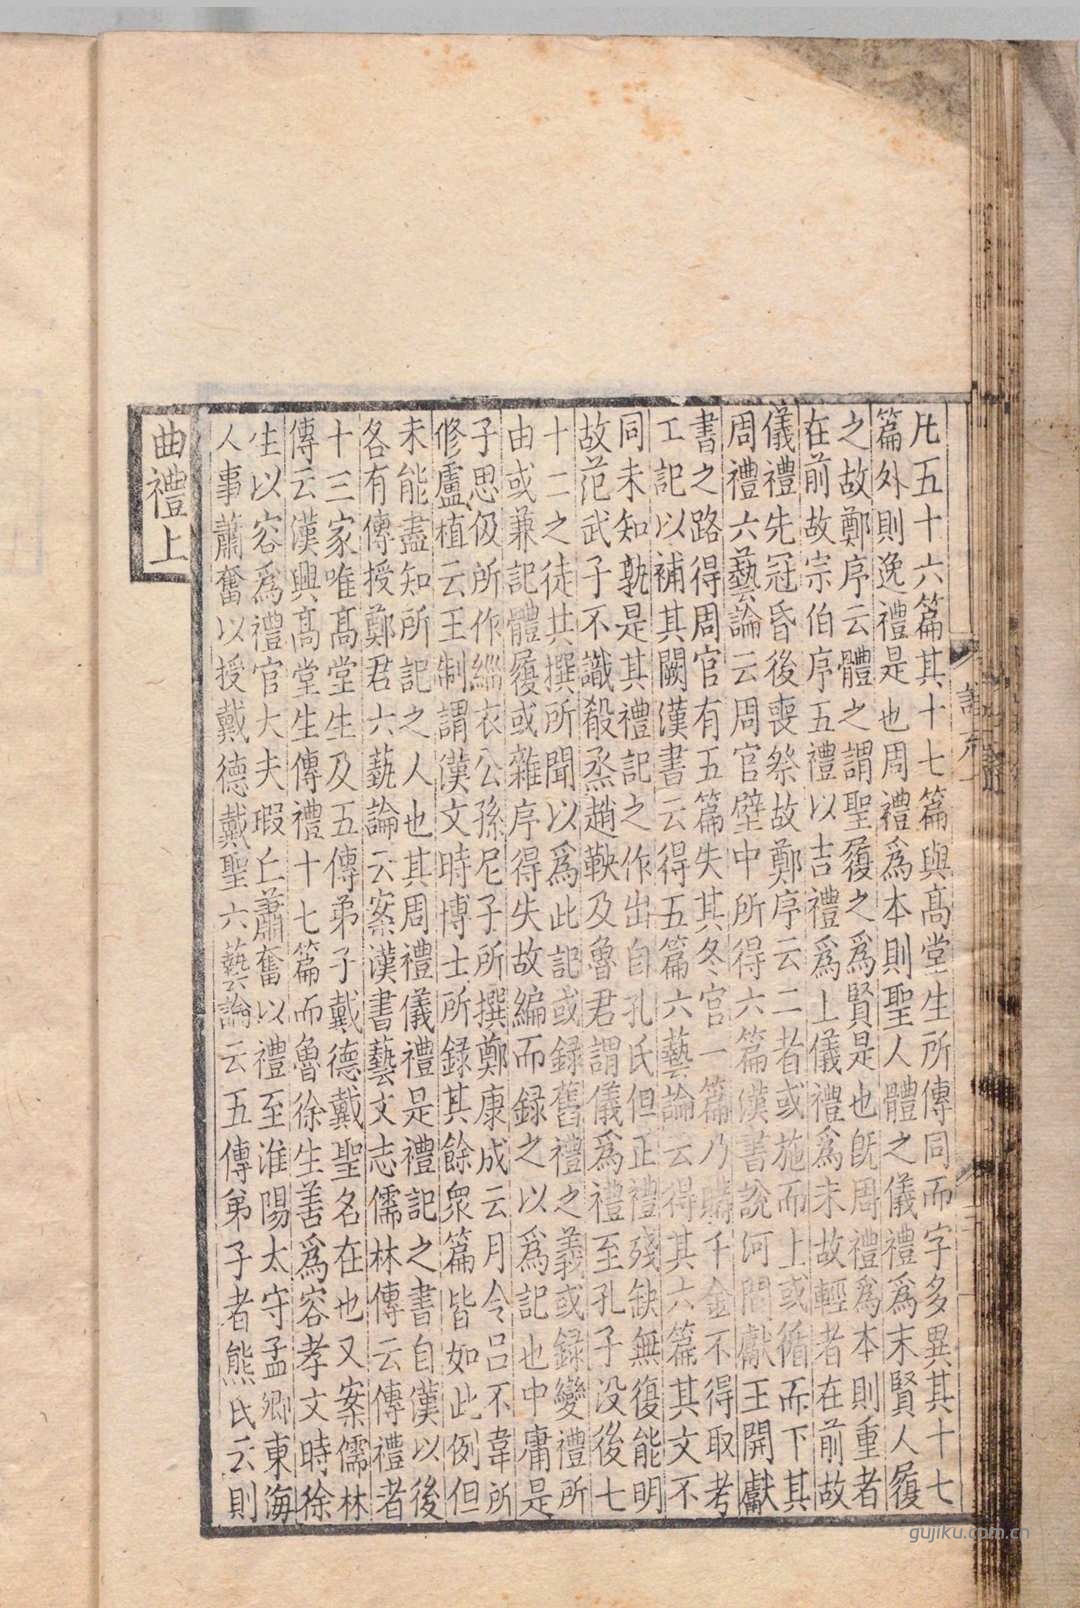 凡五十六篇其十七篇與髙堂生所傳同而字多異其十七
篇外則逸禮是也周禮爲本則聖人體之儀禮爲末賢人履
之故鄭序云體之謂聖履之爲賢是也旣周禮爲本則重者
在前故宗伯序五禮以吉禮爲上儀禮爲末故輕者在前故
儀禮先冠昏後喪祭故鄭序云二者或施而上或循而下其
周禮六藝論云周官壁中所得六篇漢書說河間獻王開獻
書之路得周官有五篇失其冬官一篇乃購千金不得取考
工記以補其闕漢書云得五篇六藝論云得其六篇其文不
同未知孰是其禮記之作出自孔氏但正禮殘缺無復能明
故范武子不識殽烝趙鞅及魯君謂儀爲禮至孔子没後七
十二之徒共撰所聞以爲此記或録舊禮之義或録變禮所
由或兼記體履或雜序得失故編而録之以爲記也中庸是
子思伋所作緇衣公孫尼子所撰鄭康成云月令吕不韋所
修盧植云王制謂漢文時博士所録其餘衆篇皆如此例但
未能盡知所記之人也其周禮儀禮是禮記之書自漢以後
各有傳授鄭君六藝論云案漢書藝文志儒林傳云傳禮者
十三家唯髙堂生及五傳弟子戴德戴聖名在也又案儒林
傳云漢興髙堂生傳禮十七篇而魯徐生善爲容孝文時徐
生以容爲禮官大夫瑕丘蕭奮以禮至淮陽太守孟卿東海
人事蕭奮以授戴德戴聖六藝論云五傳弟子者熊氏云則
曲禮上
gujiku.com.cn